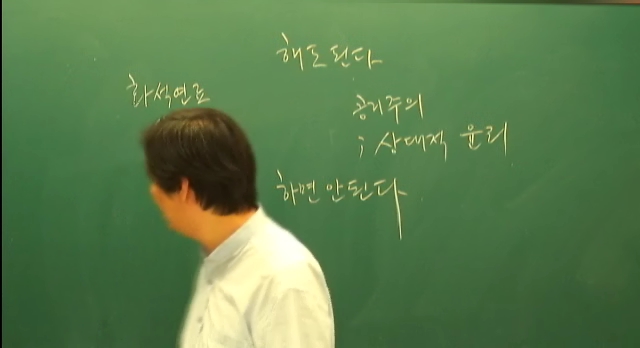 해도 된다
화석연료
공리주의
; 상대적 윤리
하면 안된다